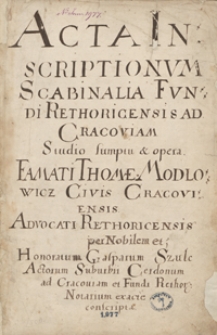 ACTA IN:
SCRIPTIONVM
SCABINALIA FVN:
DI RETHORICENSIS AD
CRACOVIAM
Studio sumptu & opera
FAMATI THOMÆ MODLO
WICZ CIVIS CRACOVI:
ENSIS
ADVOCATI RETHORICENSIS
per Nobilem et
Honoratum Gasparum Szulc
Actorum Suburbii Cerdonum
ad Cracoviam et Fundi Rethor:
Notarium exacte
conscripta
1577